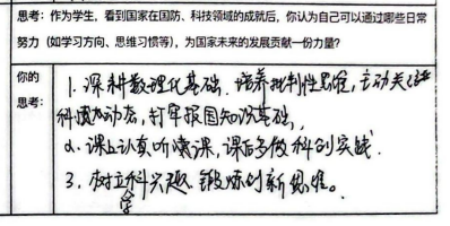 思考：作为学生，看到国家在国防、科技领域的成就后，你认为自己可以通过哪些日常
努力（如学习方向、思维习惯等），为国家未来的发展贡献一份力量？
你的
思考：
1. 深耕数理化基础，培养批判性思维，主动关注
科技动态，打牢报国知识基础，
2. 课上认真听课，课后多做科创实践
3. 树立科学兴趣，锻炼创新思维。